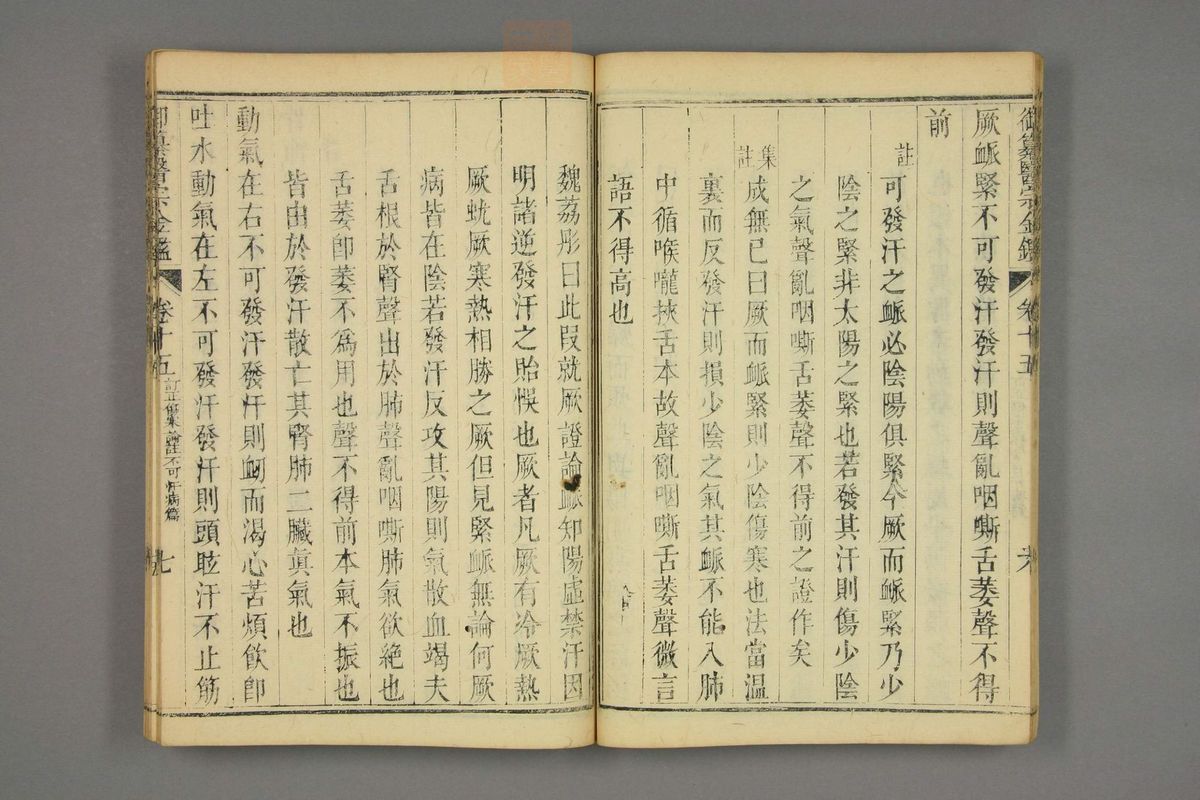 御纂醫宗金鑑 卷十五 六
厥䘑緊不可發汗發汗則聲亂咽嘶舌萎聲不得
前
註 可發汗之䘑必陰陽俱緊今厥而䘑緊乃少
陰之緊非太陽之緊也若發其汗則傷少陰
之氣聲亂咽嘶舌萎聲不得前之證作矣
集註 成無已曰厥而䘑緊則少陰傷寒也法當溫
裏而反發汗則損少陰之氣其䘑不能入肺
中循喉嚨挾舌本故聲亂咽嘶舌萎聲微言
語不得高也
魏荔彤曰此叚就厥證論䘑知陽虛禁汗因
明諸逆發汗之貽悞也厥者凡厥有冷厥熱
厥蚘厥寒熱相勝之厥但見緊䘑無論何厥
病皆在陰若發汗反攻其陽則氣散血竭夫
舌根於腎聲出於肺聲亂咽嘶肺氣欲絕也
舌萎卽萎不爲用也聲不得前本氣不振也
皆由於發汗散亡其腎肺二臟眞氣也
動氣在右不可發汗發汗則衂而渴心苦煩飮卽
吐水動氣在左不可發汗發汗則頭眩汗不止筋
御纂醫宗金鑑 卷十五 訂正傷寒論註不可汗病篇 七